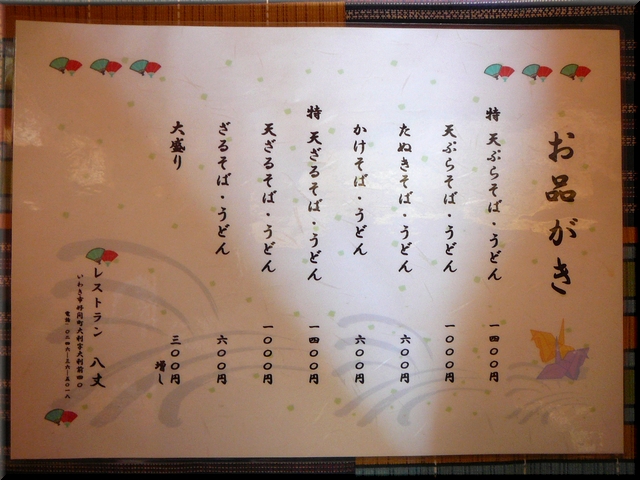 お品がき
特 天ぷらそば・うどん 一四〇〇円
天ぷらそば・うどん 一〇〇〇円
たぬきそば・うどん 六〇〇円
かけそば・うどん 六〇〇円
特 天ざるそば・うどん 一四〇〇円
天ざるそば・うどん 一〇〇〇円
ざるそば・うどん 六〇〇円
大盛り 三〇〇円増し
レストラン 八丈
いわき市好間町大利字大利前四〇
電話